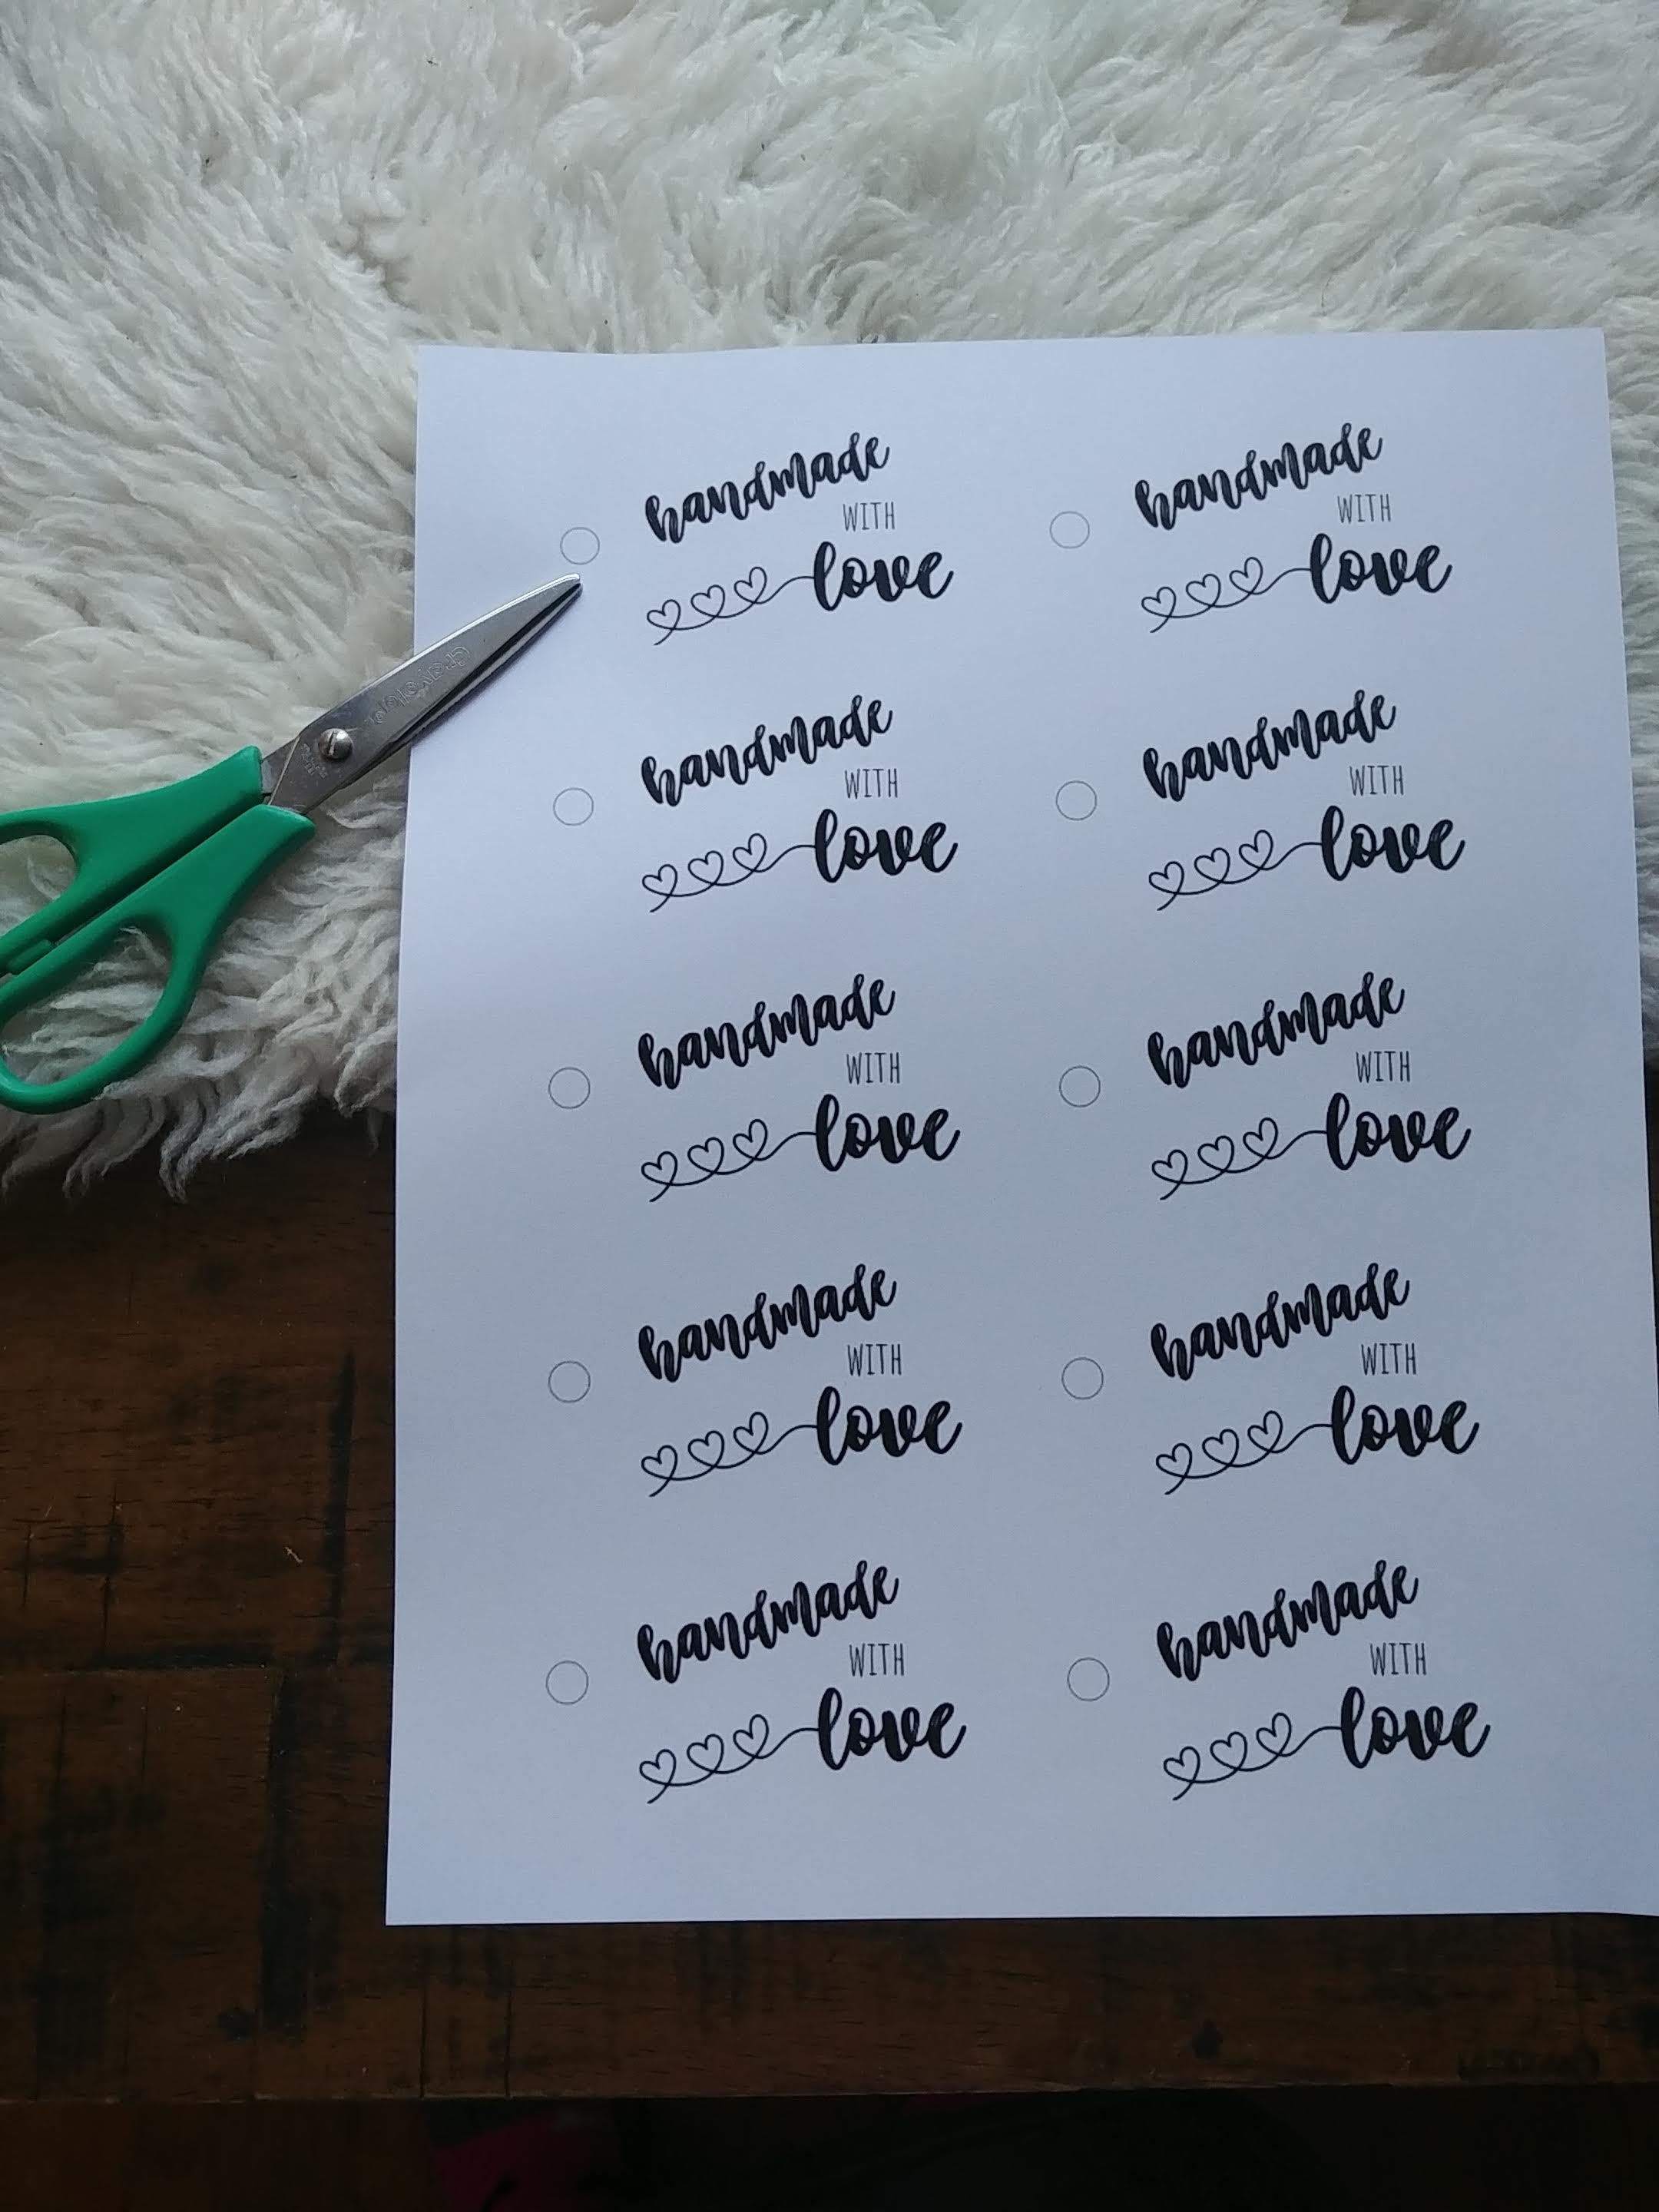 handmade
WITH
love
handmade
WITH
love
handmade
WITH
love
handmade
WITH
love
handmade
WITH
love
handmade
WITH
love
handmade
WITH
love
handmade
WITH
love
handmade
WITH
love
handmade
WITH
love
Crayola